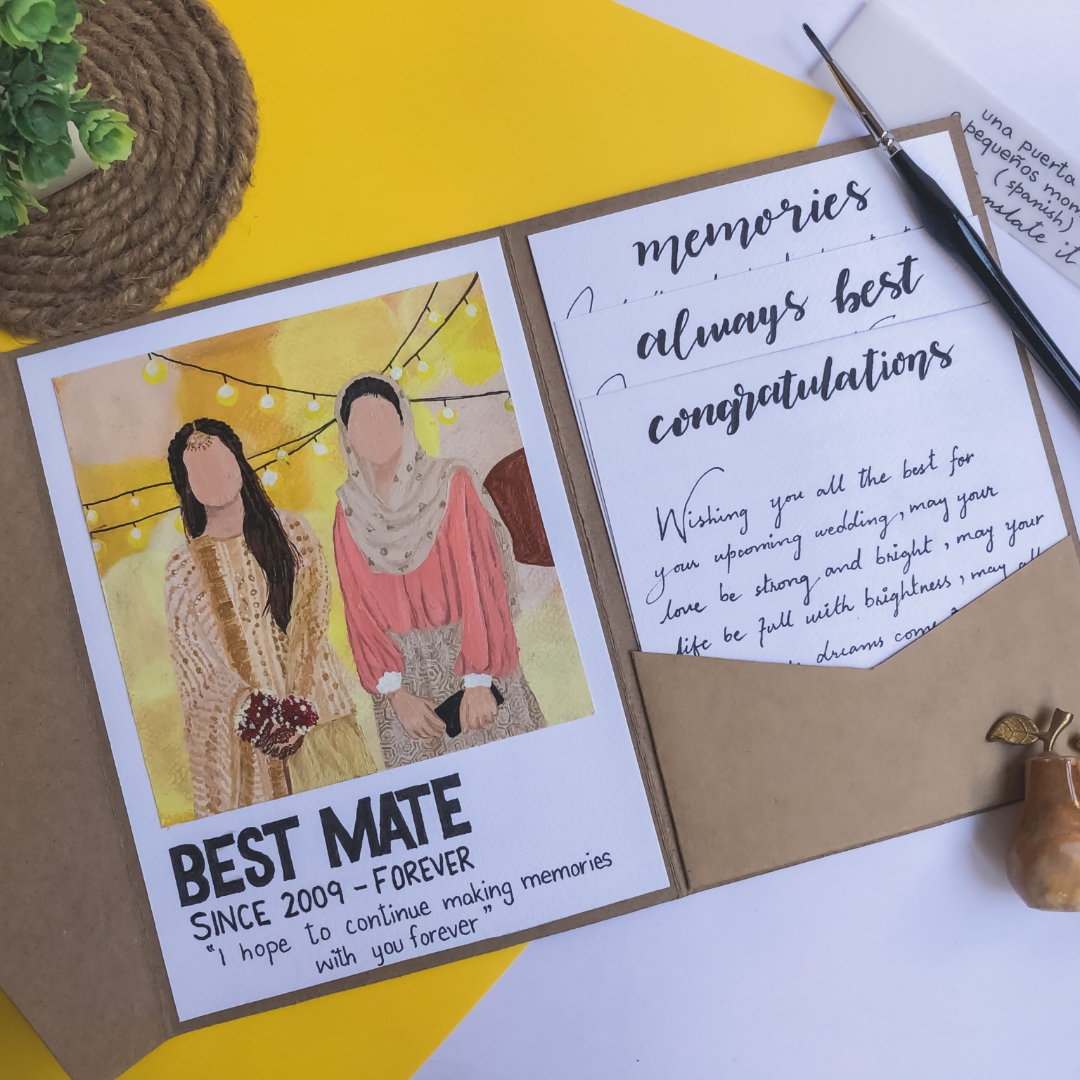 BEST MATE
SINCE 2009 - FOREVER
"I hope to continue making memories
with you forever"
memories
always best
congratulations
Wishing you all the best for
your upcoming wedding, may your
love be strong and bright, may your
life be full with brightness, may all
dreams come
una puerta
pequeños mom
(spanish)
nslate it